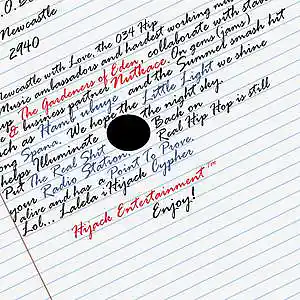 Newcastle
2940
Newcastle with Love, the 034 Hip
Music ambassadors and hardest working
& The Gardeners of Eden, collaborate with
& business partner Nutkace. On gems (jams)
such as Hamb'ubuye and the Summer smash hit
Spana. We hope the Little Light we shine
helps Illuminate the night sky.
Put The Real Shit Back on
your Radio Station. Real Hip Hop is still
alive and has a Point to Prove.
Lol... Lalela i'Hijack Cypher
Hijack Entertainment™
Enjoy!